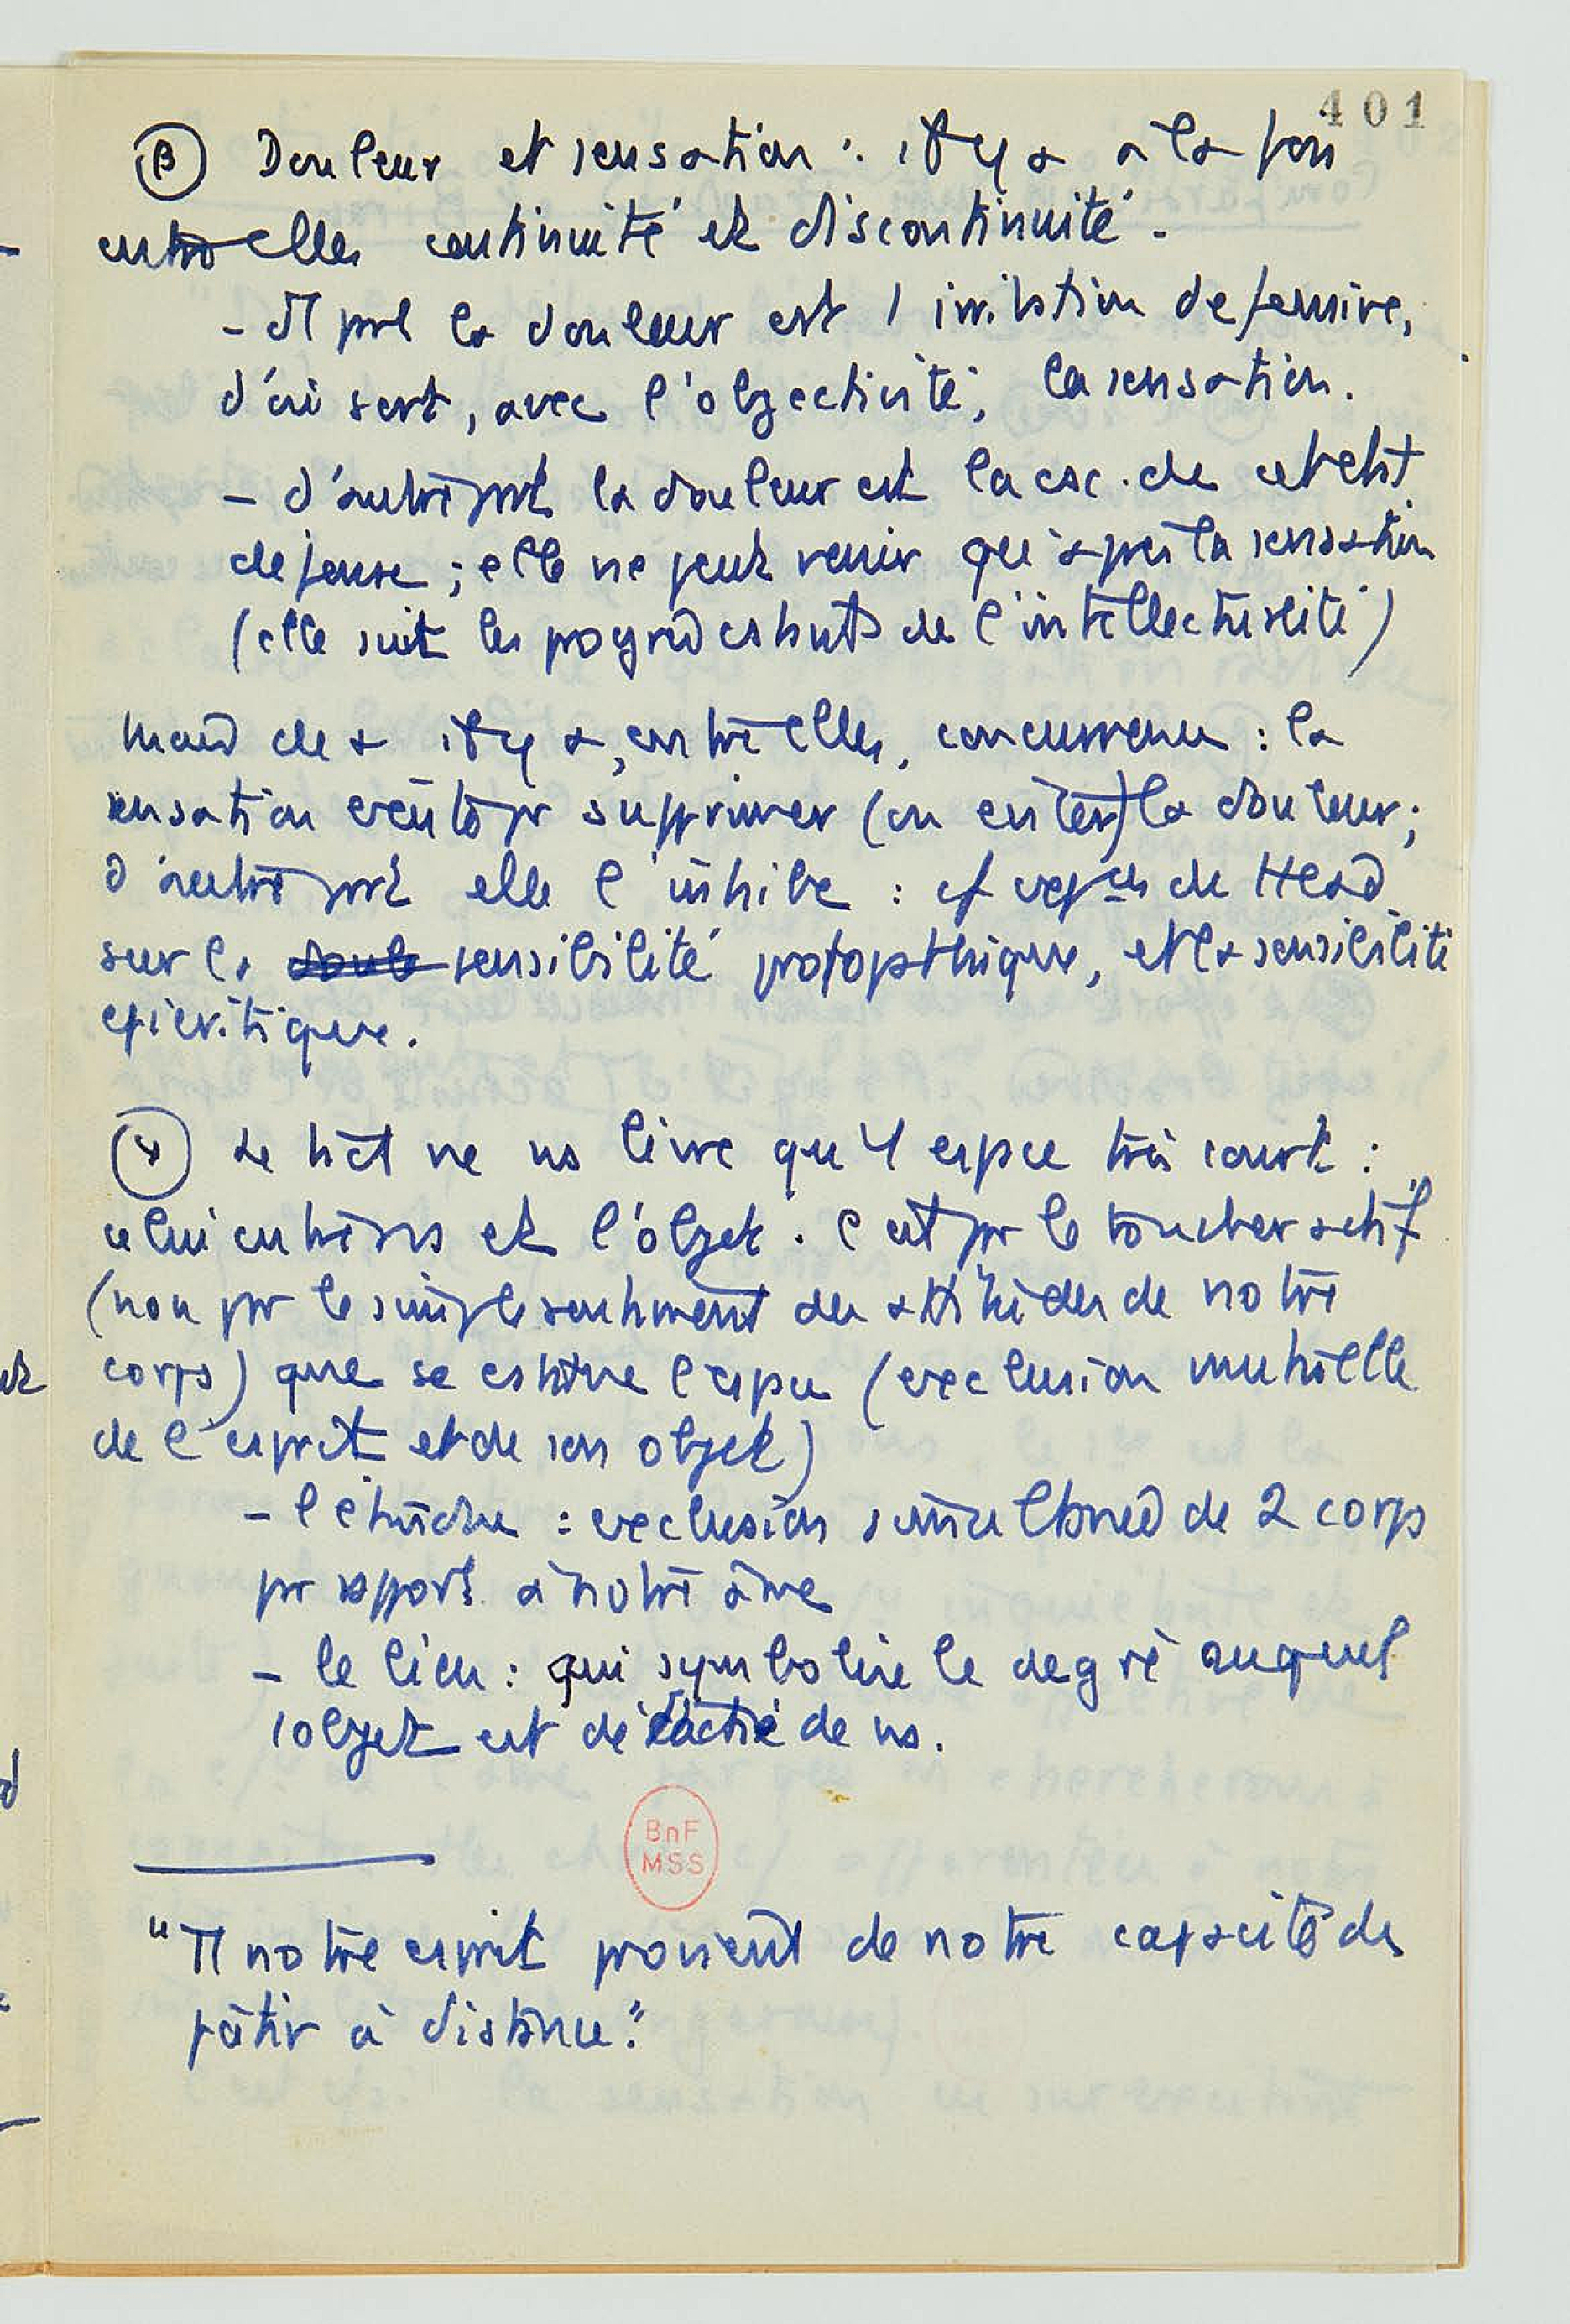 401
β Douleur et sensation : il y a à la fois
entre elles continuité et discontinuité.
- d'1 part la douleur est 1 irritation defensive,
d'où sort, avec l'objectivité, la sensation.
- d'autre part la douleur est la csc. de cet état
defense ; elle ne peut venir qu'apres la sensation
(elle suit les progrès csts de l'intellectualité)
mais de + il y a, entre elles, concurrence : la
sensation existe pr supprimer (ou eviter) la douleur ;
d'autre part elle l'inhibe : cf expces de Head
sur la doule sensibilité protopathique, et la sensibilité
epicritique.
γ Le tact ne ns livre qu'1 espce très court :
celui entre ns et l'objet. C'est pr le toucher actif
(non pr le simple sentiment des attitudes de notre
corps) que se cstitue l'espce (exclusion mutuelle
de l'esprit et de son objet)
- l'étendue : exclusion simultanée de 2 corps
pr rapport à notre âme
- le lieu : qui symbolise le degré auquel
l'objet est détaché de ns.
BnF
MSS
"Tt notre esprit provient de notre capacité de
pâtir à distance."